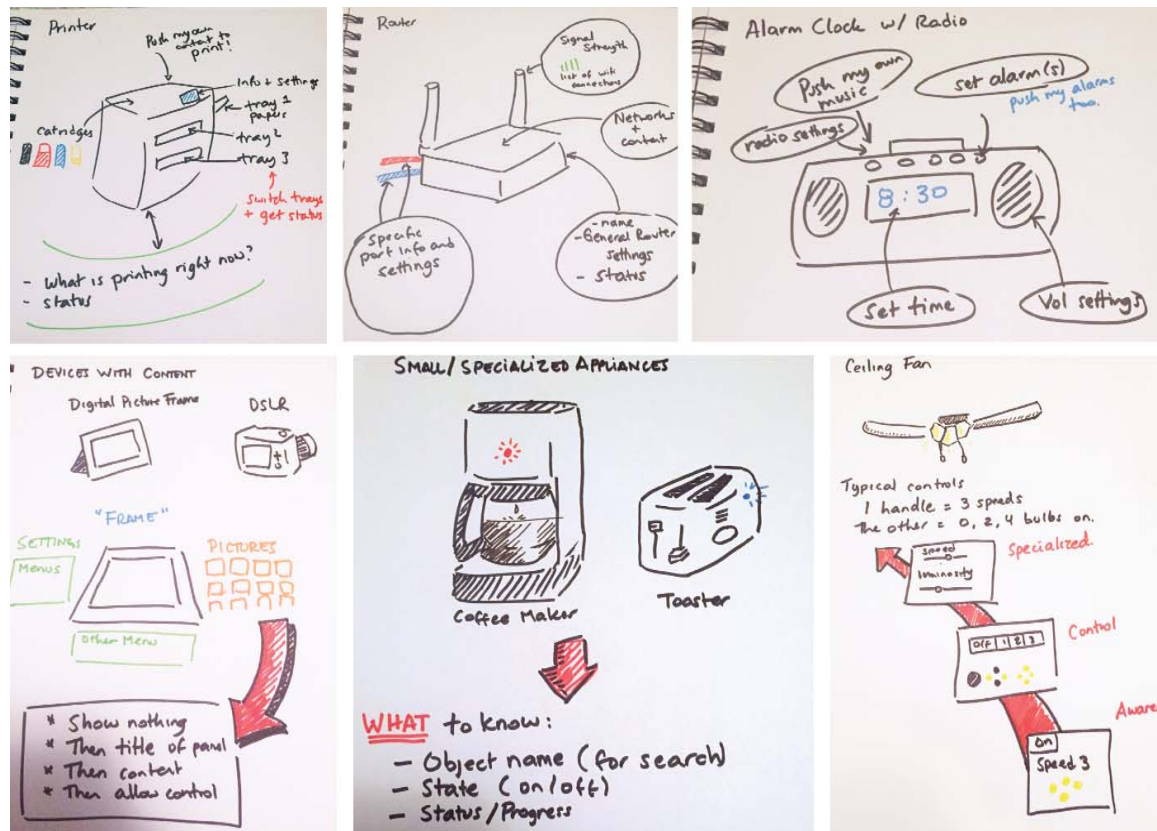 Printer
Push my own
content to
print!
Info + settings
tray 1
papers
tray 2
tray 3
Catridges
switch trays
+ get status
- What is printing right now?
- status
Router
Signal
Strength
list of wifi
connections
Networks
+
content
Specific
port info and
settings
- name
- General Router
settings
- Status
Alarm Clock w/ Radio
Push my own
music
set alarm(s)
push my alarms
too.
radio settings
8:30
Set time
Vol settings
DEVICES WITH CONTENT
Digital Picture Frame
DSLR
"FRAME"
SETTINGS
Menus
PICTURES
Other Menu
* Show nothing
* Then title of panel
* Then content
* Then allow control
SMALL/SPECIALIZED APPLIANCES
Coffee Maker
Toaster
WHAT to know:
- Object name (for search)
- State (on/off)
- Status/Progress
Ceiling Fan
Typical controls
1 handle = 3 speeds
The other = 0, 2, 4 bulbs on.
Specialized
speed
luminosity
Control
OFF 1 2 3
Aware
On
Speed 3